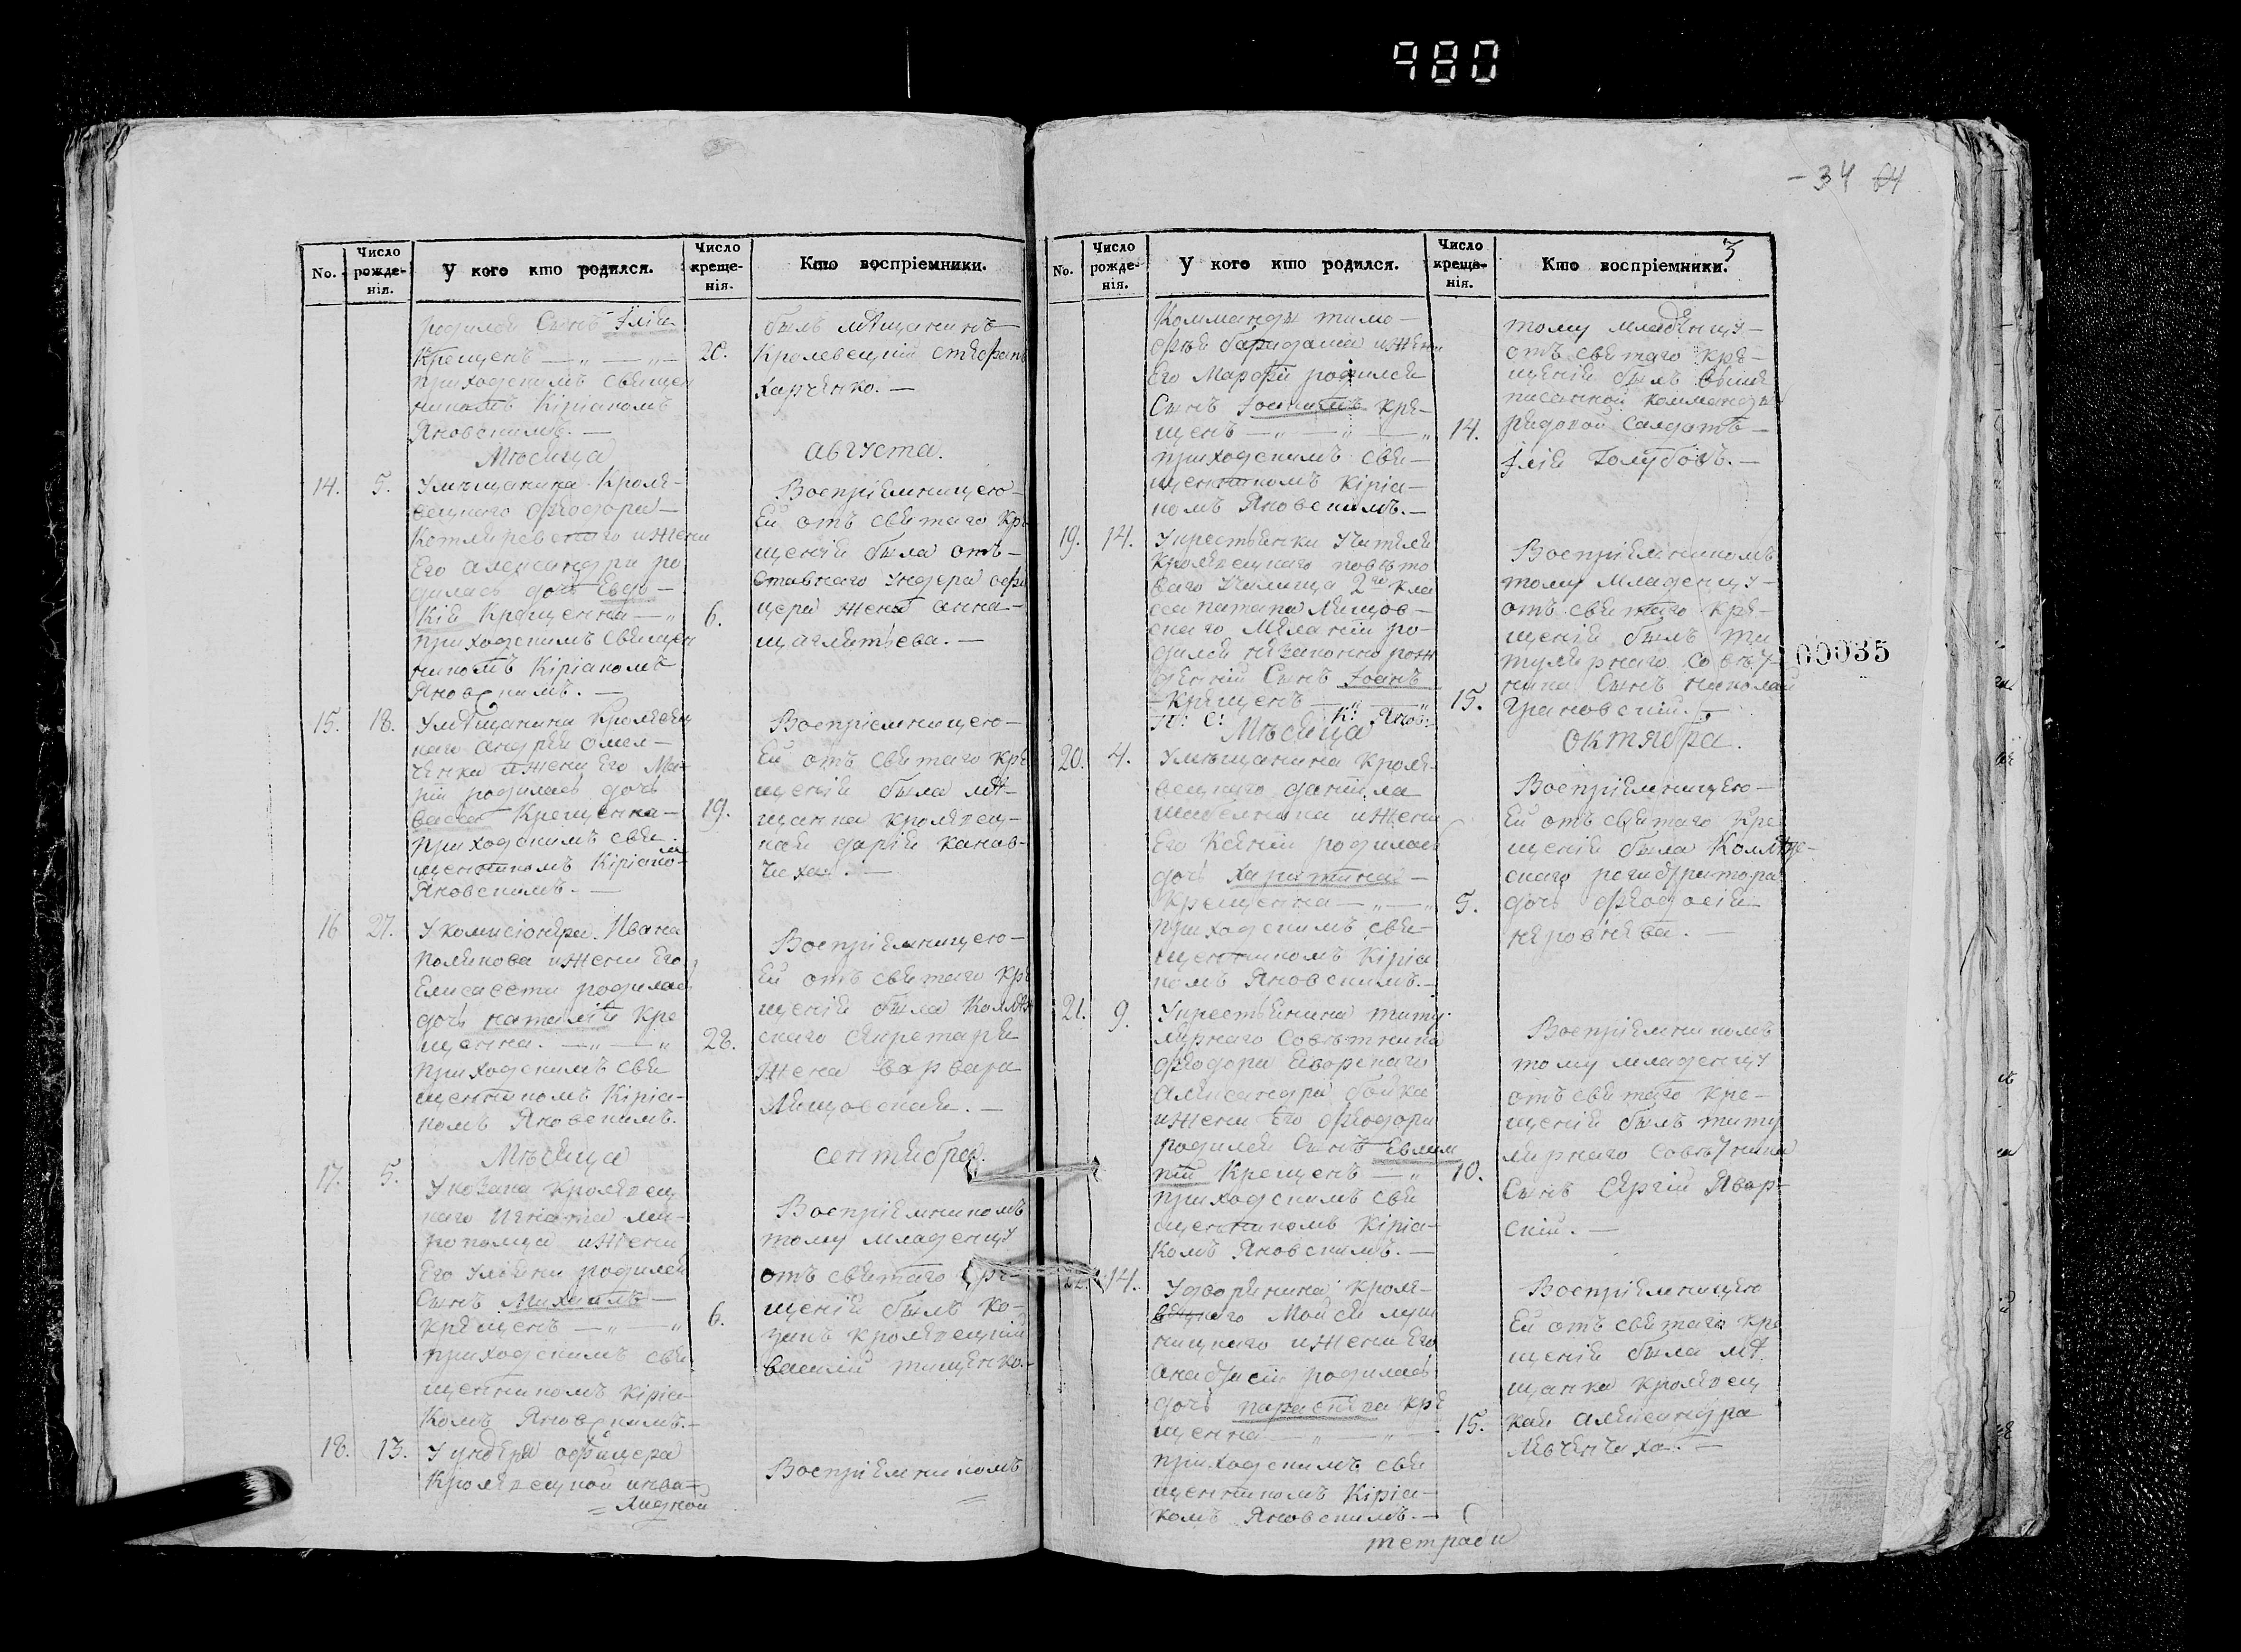 980
34 64
3
No.
Число рожде- нія.
У кого кто родился.
Число креще- нія.
Кто воспріемники.
родилси Сынъ Iлія
Крещенъ — „ — „ — 20.
приходскимъ священ
никомъ Кіріакомъ
Яновскимъ. —
былъ мѣщанинъ
Кролевецкій стефанъ
Харченко. —
Мѣсяца августа.
14. 5. Умѣщанина Кроле-
вецкаго феодора
Котляревскаго ижени
Его александры ро
дилась дочь Евдо-
Кія Крещенна — „ 6.
приходскимъ священ
никомъ Кіріакомъ
Яновскимъ. —
Воспріемницею —
Ей отъ святаго Кре
щенія была отъ-
ставнаго Ундера офи
цера жена анна —
15. 18. Умѣщанина Кролевец
каго андрея омел-
ченка ижени Его Ма-
ріи родилась дочь
Васса Крещенна — 19.
приходскимъ свя-
щенникомъ Кіріако-
Яновскимъ. —
Воспріемницею —
Ей отъ святаго кре
щенія была мѣ-
щанка кролевец-
кая дарія канов-
чиха. —
16 27. У комисіонера Ивана
Полякова ижени Его
Елисавети родилась
дочь наталія Кре
щенна. — „ — „ 28.
приходскимъ свя
щенникомъ Кіріа-
комъ Яновскимъ.
Воспріемницею —
Ей отъ святаго кре
щенія была Коллѣж
скаго секретаря
жена варвара
Лящовская. —
Мѣсяца сентября.
17. 5. Укозака кролевец
каго Игната ми-
рополца ижени
Его Уліяни родилси
Сынъ Михаилъ —
крещенъ — „ — „ 6.
приходскимъ свя
щенникомъ Кіріа-
Комъ Яновскимъ. —
Воспріемникомъ
тому младенцу
отъ святаго кре-
щенія былъ ко-
закъ кролевецкій
василій тищенко. —
18. 13. У ундера офицера
Кролевецкой инва-
= лидной
Воспріемникомъ
No.
Число рожде- нія.
У кого кто родился.
Число креще- нія.
Кто воспріемники.
Комманды тимо-
фея ижени
Его Марфи родился
Сынъ Iоакимъ кре-
щенъ — „ — „ — „ 14.
приходскимъ свя-
щенникомъ Кіріа-
комъ Яновскимъ. —
тому младенцу —
отъ святаго кре-
щенія былъ више
писанной комманды
рядовой Салдатъ —
Iлія Голубовъ. —
19. 14. Укрестьянки Учителя
кролевецкаго повѣто
ваго Училища 2го кла
са патапа Лящов-
скаго Меланіи ро-
дился незаконно рож
денній Сынъ Iоанъ
Крещенъ — „ — „ 15.
П: С: К: Янов:
Воспріемникомъ
тому Младенцу —
отъ святаго кре-
щенія былъ ти
тулярнаго совѣт-
ника Сынъ николай
Грановскій. —
00035
Мѣсяца октября.
20. 4. Умѣщанина кроле-
вецкаго даніила
шабелника ижени
Его Ксеніи родилась
дочь Харитина —
Крещенна — „ — „ 5.
приходскимъ свя-
щенникомъ Кіріа
комъ Яновскимъ. —
Воспріемницею —
Ей отъ святаго Кре
щенія была Коллѣже-
скаго регистратора
дочь феодосія
неровнева. —
21. 9. Укрестьянина титу-
лярнаго Совѣтника
феодора Яворскаго
александра бойка
ижени Его феодори
родился Сынъ Евлам
пій Крещенъ — „ 10.
приходскимъ свя
щенникомъ Кіріа-
Комъ Яновскимъ. —
Воспріемникомъ
тому младенцу
отъ святаго кре-
щенія былъ титу
лярнаго Совѣтника
Сынъ Сергій Явор-
скій. —
22. 14. Удворянина кроле-
вецкаго Мойсея луш
ницкаго ижени Его
анастасіи родилась
дочь параскева кре
щенна — „ — „ 15.
приходскимъ свя
щенникомъ Кіріа-
комъ Яновскимъ. —
Воспріемницею
Ей отъ святаго кре
щенія была мѣ
щанка кролевец
кая александра
Левченчиха. —
тетради